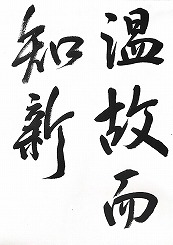 温故而
知新